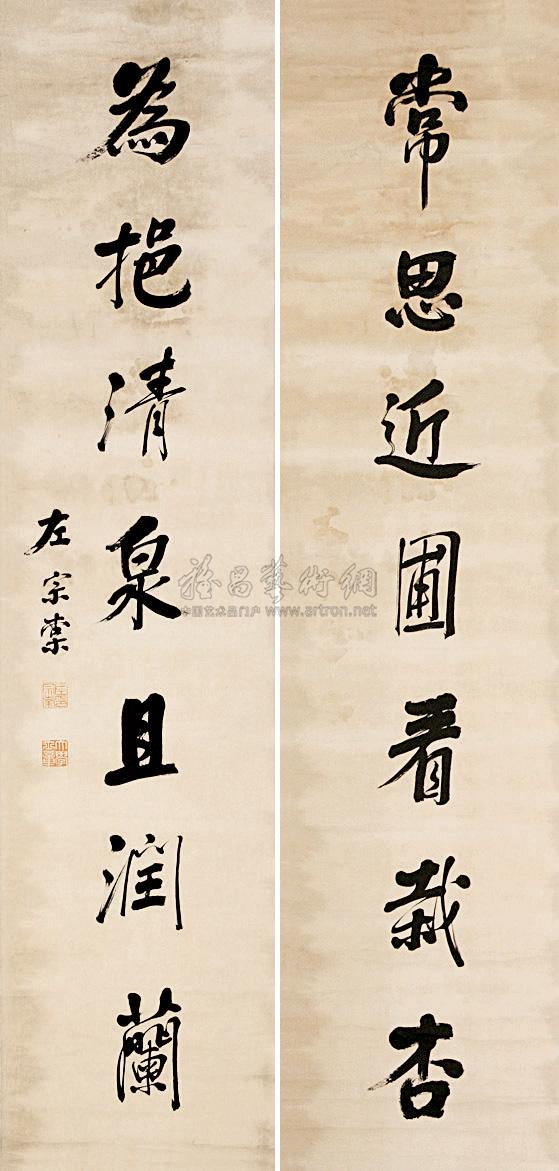 常思近圃看栽杏
為挹清泉且潤蘭
左宗棠
雅昌藝術網
中国艺术品门户 www.artron.net